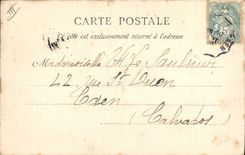 III
CARTE POSTALE
Ce côté est exclusivement réservé à l'adresse
Mademoiselle Ch. Le Saulnier
42, rue St Ouen
Caen
(Calvados)